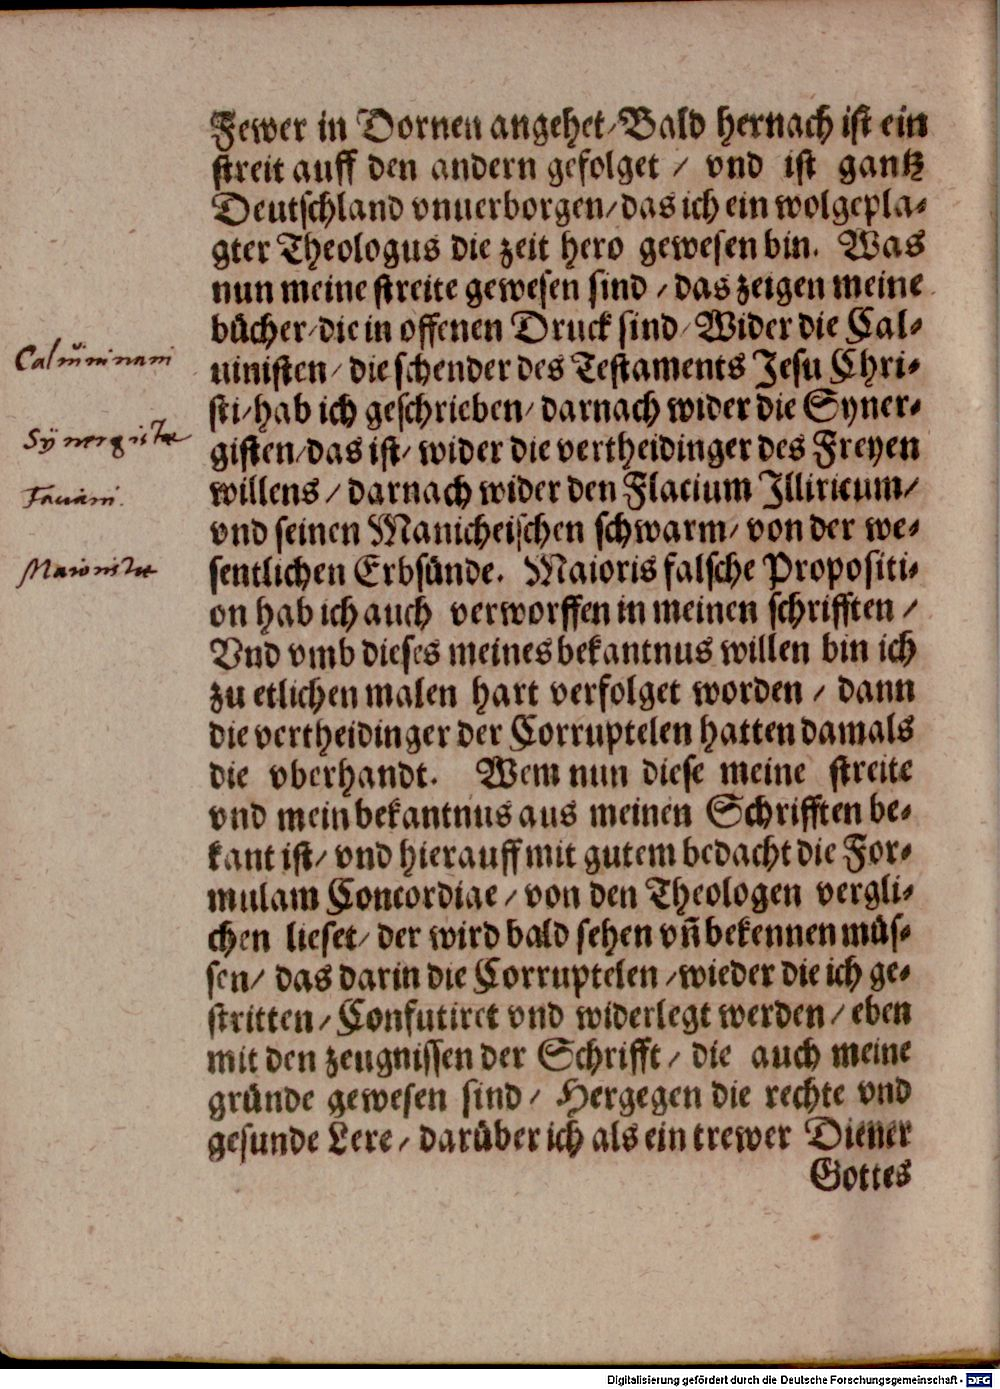 Fewer in Dornen angehet/Bald hernach ist ein
streit auff den andern gefolget / vnd ist gantz
Deutschland vnuerborgen/das ich ein wolgepla-
gter Theologus die zeit hero gewesen bin. Was
nun meine streite gewesen sind / das zeigen meine
bücher/die in offenen Druck sind/Wider die Cal-
uinisten/ die schender des Testaments Jesu Chri-
sti/hab ich geschrieben/darnach wider die Syner-
gisten/das ist/ wider die vertheidinger des Freyen
willens / darnach wider den Flacium Illiricum/
vnd seinen Manicheischen schwarm/ von der we-
sentlichen Erbsünde. Maioris falsche Propositi-
on hab ich auch verworffen in meinen schrifften /
Vnd vmb dieses meines bekantnus willen bin ich
zu etlichen malen hart verfolget worden / dann
die vertheidinger der Corruptelen hatten damals
die vberhandt. Wem nun diese meine streite
vnd mein bekantnus aus meinen Schrifften be-
kant ist/ vnd hierauff mit gutem bedacht die For-
mulam Concordiae / von den Theologen vergli-
chen lieset/ der wird bald sehen vñ bekennen müs-
sen/ das darin die Corruptelen /wieder die ich ge-
stritten / Confutiret vnd widerlegt werden / eben
mit den zeugnissen der Schrifft / die auch meine
gründe gewesen sind / Hergegen die rechte vnd
gesunde Lere / darüber ich als ein trewer Diener
Gottes
Calŭiniani
Sÿnergistae
Flaciani.
Maioristae
Digitalisierung gefördert durch die Deutsche Forschungsgemeinschaft - DFG